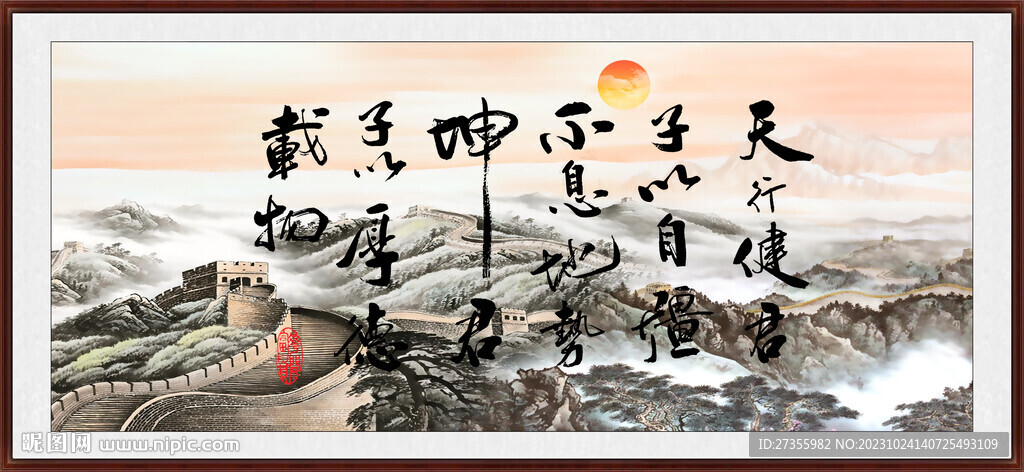 天行健君
子以自彊
不息地勢
坤君
子以厚德
載物
昵图网 www.nipic.com
ID:27355982 NO:20231024140725493109